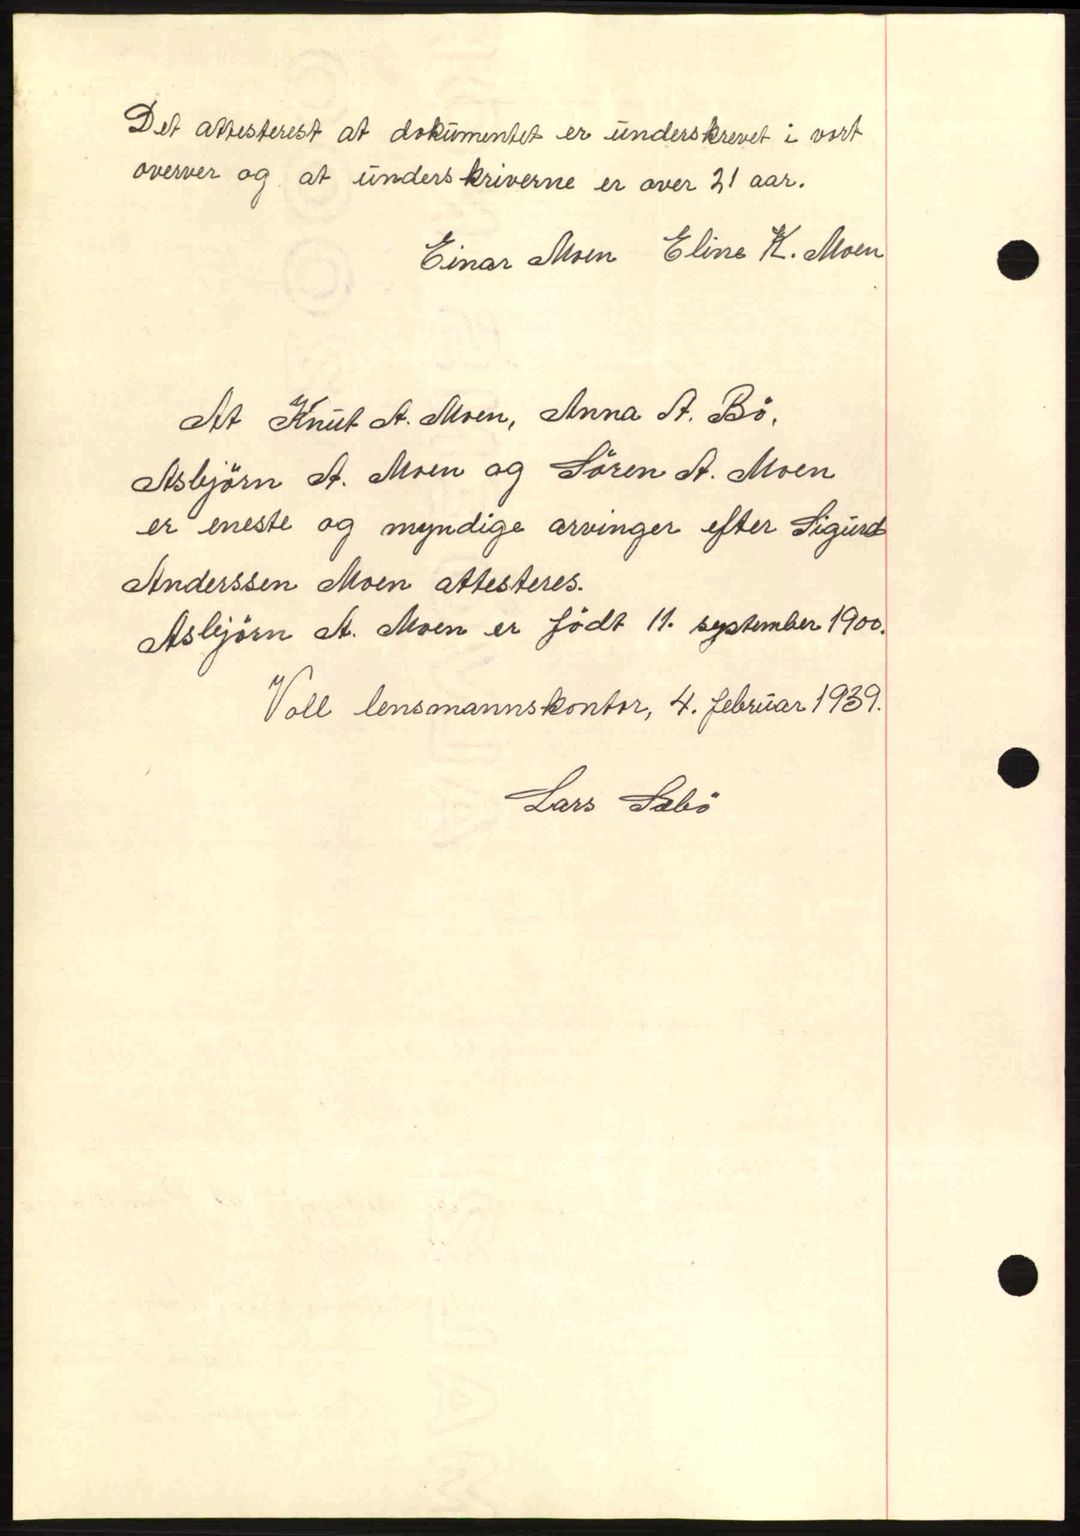 Det attesterest at dokumentet er underskrevet i vort
overver og at underskriverne er over 21 aar.
Einar Moen Eline K. Moen
At Knut A. Moen, Anna A. Bö,
Asbjörn A. Moen og Sören A. Moen
er eneste og myndige arvinger efter Sigurd
Anderssen Moen attesteres.
Asbjörn A. Moen er födt 11. september 1900.
Voll lensmannskontor, 4. februar 1939.
Lars Sæbö